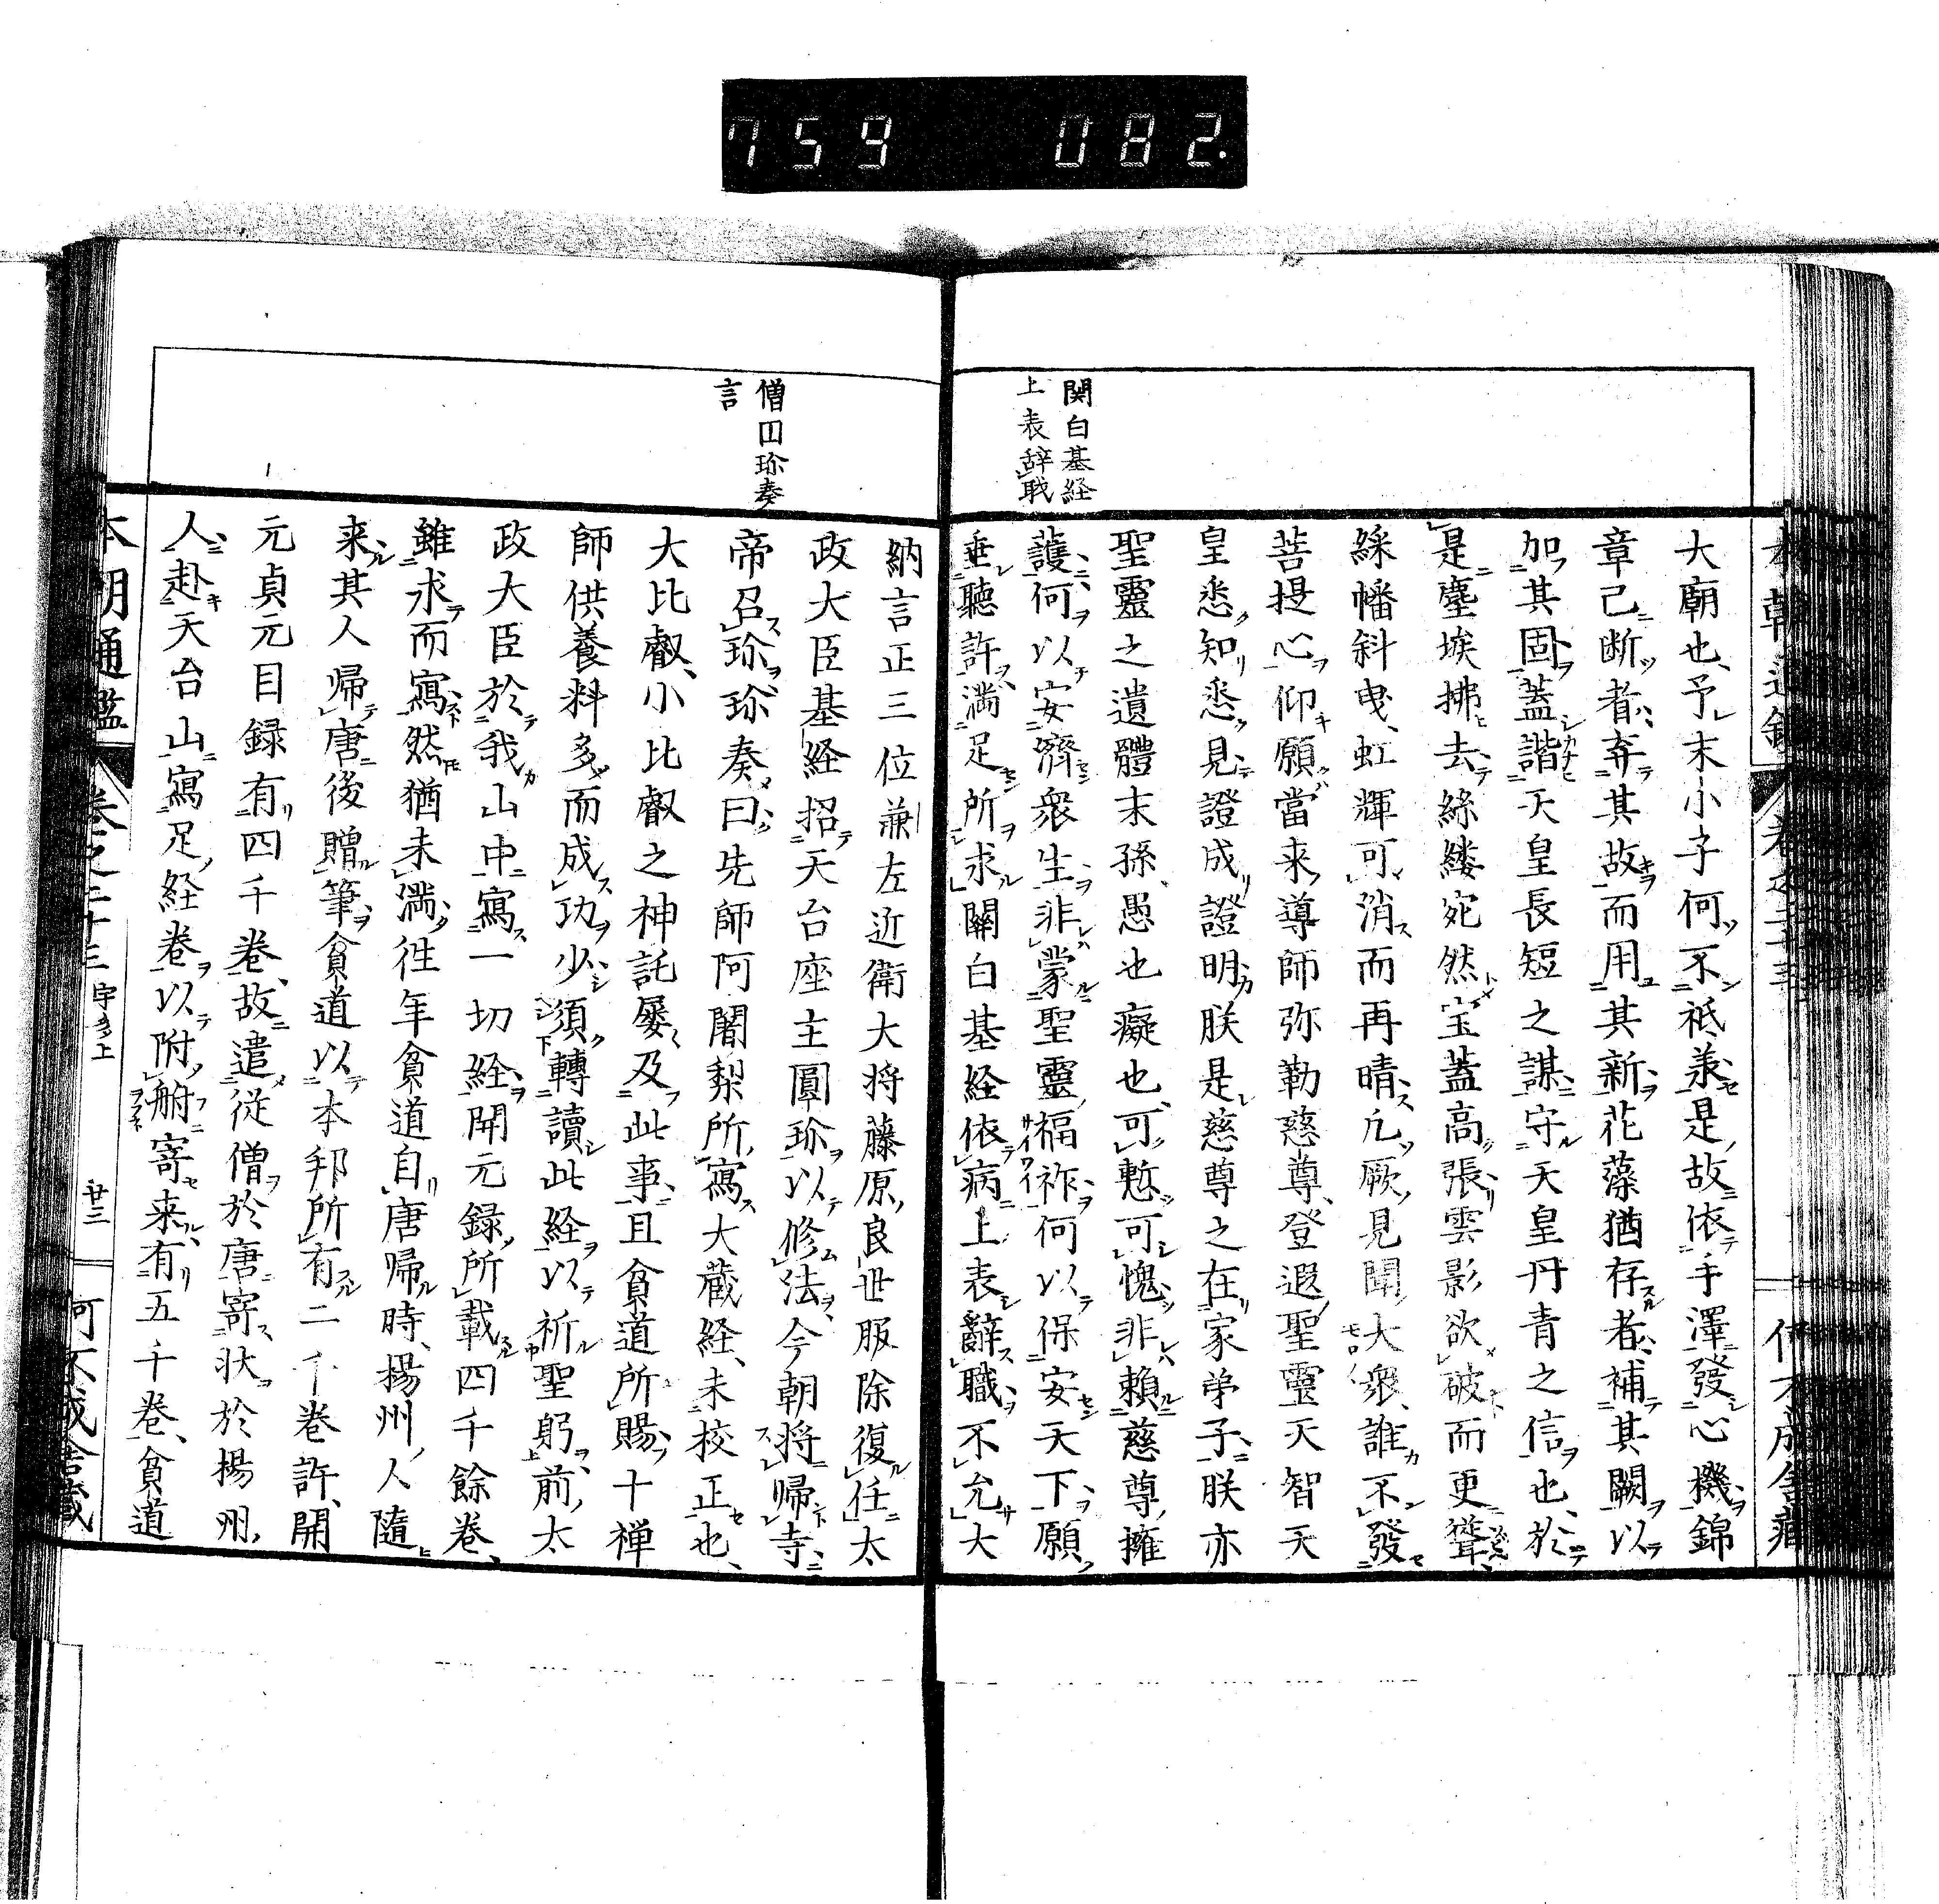 759 082.
関白基経
上表辞職
大廟也予末小子何不祗羕是故依手澤發心機錦
章已断者弃其故而用其新花藻猶存者補其闕以
加其固蓋諧天皇長短之謀守天皇丹青之信也於
是塵埃拂去絲縷宛然宝蓋高張雲影欲破而更聳
綵幡斜曳虹輝可消而再晴凢厥見聞大衆誰不發
菩提心仰願當来導師弥勒慈尊登遐聖靈天智天
皇悉知悉見證成證明朕是慈尊之在家弟子朕亦
聖靈之遺體末孫愚也癡也可慙可愧非頼慈尊擁
護何以安濟衆生非蒙聖靈福祚何以保安天下願
垂聽許満足所求關白基経依病上表辭職不允大
僧囙珎奏
言
納言正三位兼左近衛大将藤原良世服除復任太
政大臣基経招天台座主圓珎以修法今朝将帰寺
帝召珎珎奏曰先師阿闍梨所寫大藏経未挍正也
大比叡小比叡之神託屡及此事且貧道所賜十禅
師供養料多而成功少須轉讀此経以祈聖躬前太
政大臣於我山中寫一切経開元録所載四千餘卷
雖求而寫然猶未満徃年貧道自唐帰時揚州人隨
来其人帰唐後贈筆貧道以本邦所有二千卷許開
元貞元目録有四千卷故遣従僧於唐寄状於揚州
人赴天台山寫足経卷以附舶寄来有五千卷貧道
本朝通鑑
卷之二十三
宇多上
廿三
何不成舎蔵